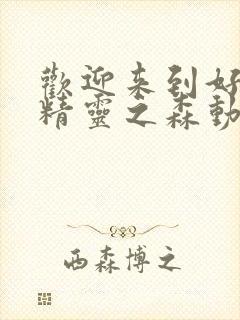 歡迎来到好
精靈之森動
西森博之